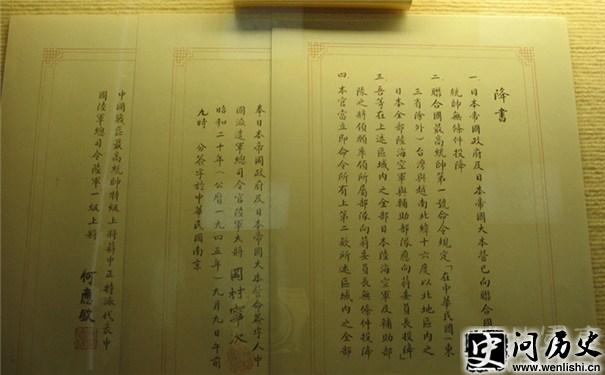 降書
一、日本帝國政府及日本帝國大本營已向聯合國
統帥無條件投降
二、聯合國最高統帥第一號命令規定「在中華民國(東
三省除外)台灣與越南北緯十六度以北地區內之
日本全部陸海空軍與輔助部隊應向蔣委員長投降」
三、吾等在上述區域內之全部日本陸海空軍及輔助部
隊之將領願率領所屬部隊向蔣委員長無條件投降
四、本官當立即命令所有上第二款所述區域內之全部
奉日本帝國政府及日本帝國大本營命簽字人中
國派遣軍總司令官陸軍大將 岡村寧次
昭和二十年(公曆一九四五年)九月九日午前
九時 分簽字於中華民國南京
中國戰區最高統帥特級上將蔣中正特派代表中
國陸軍總司令陸軍一級上將 何應欽
问历史
www.wenlishi.cn